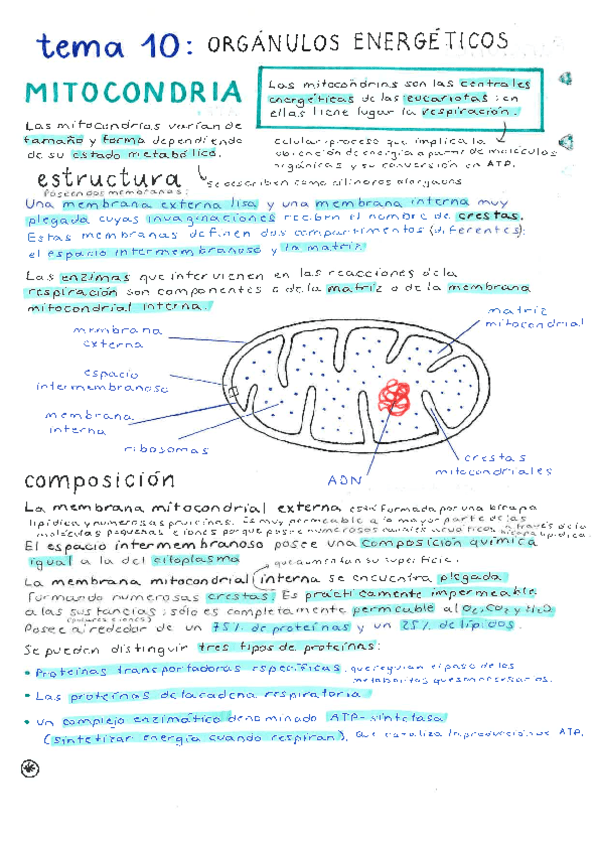 tema 10: ORGÁNULOS ENERGÉTICOS
MITOCONDRIA
Las mitocondrias son las centrales
energéticas de las eucariotas: en
ellas tiene lugar la respiración.
Las mitocondrias varían de
tamaño y forma dependiendo
de su estado metabólico.
celular: proceso que implica la
obtención de energía a partir de moléculas
orgánicas y su conversión en ATP.
estructura
se describen como cilindros alargados
Poseen dos membranas:
Una membrana externa lisa y una membrana interna muy
plegada cuyas invaginaciones reciben el nombre de crestas.
Estas membranas definen dos compartimentos (diferentes):
el espacio intermembranoso y la matriz
Las enzimas que intervienen en las reacciones de la
respiración son componentes o de la matriz o de la membrana
mitocondrial interna.
membrana
externa
matriz
mitocondrial
espacio
intermembranoso
membrana
interna
ribosomas
ADN
crestas
mitocondriales
composición
La membrana mitocondrial externa está formada por una bicapa
lipídica y numerosas proteínas. Es muy permeable a la mayor parte de las
moléculas pequeñas e iones porque posee numerosos canales acuáticos a través de la
bicapa lipídica.
El espacio intermembranoso posee una composición química
igual a la del citoplasma
que aumentan su superficie.
La membrana mitocondrial interna se encuentra plegada
formando numerosas crestas. Es prácticamente impermeable
a las sustancias; sólo es completamente permeable al O₂, CO₂ y H₂O.
Posee alrededor de un 75% de proteínas y un 25% de lípidos.
Se pueden distinguir tres tipos de proteínas:
• Proteínas transportadoras específicas, que regulan el paso de los
metabolitos que son necesarios.
• Las proteínas de la cadena respiratoria
• un complejo enzimático denominado ATP-sintetasa
(sintetizar energía cuando respiran), que cataliza la producción de ATP.